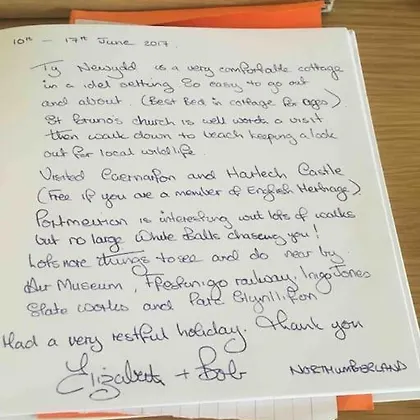 10th - 17th June 2017.
Ty Newydd is a very comfortable cottage
in a idel setting so easy to go out
and about. (Best Bed in cottage for ages)
St Bruno's church is well worth a visit
then walk down to beach keeping a look
out for local wildlife.
Visited Caernarfon and Harlech Castle
(Free if you are a member of English Heritage).
Portmeirion is interesting with lots of walks
but no large White Balls chasing you!
Lots more things to see and do near by
Air Museum, Ffestiniog railway, Inigo Jones
Slate works and Parc Glynllifon
Had a very restful holiday. Thank you
Elizabeth + Bob NORTHUMBERLAND